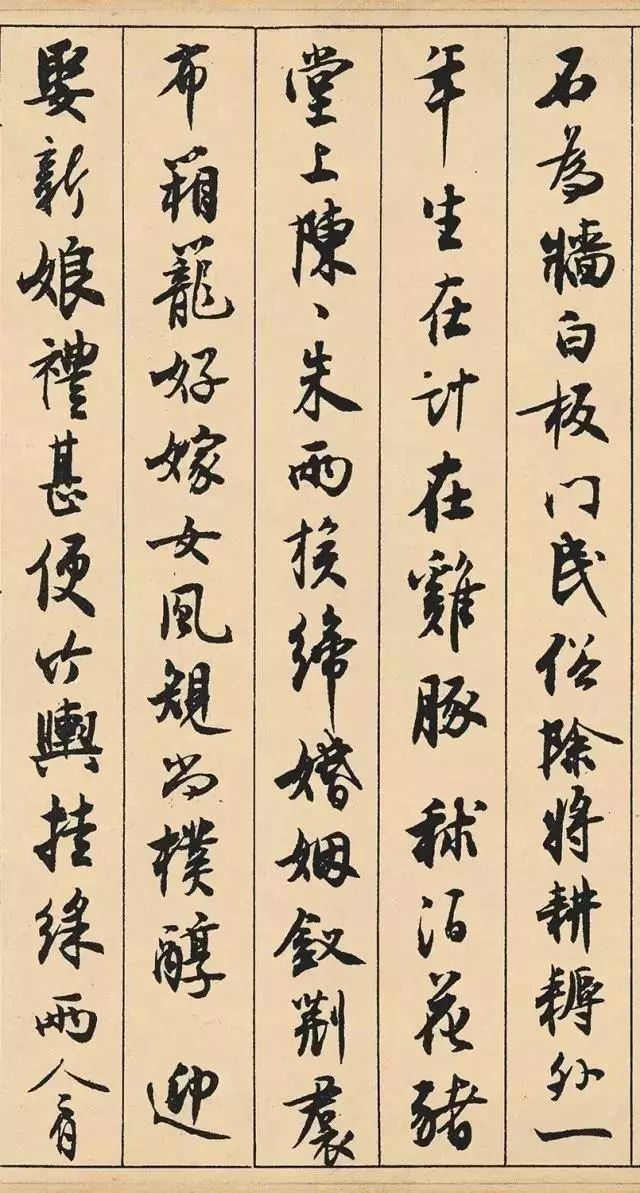 石為牆白板门民俗除將耕耨外一
年生在計在雞豚 秫酒花豬
堂上陳〻朱兩族締婚姻釵荆裠
布箱籠好嫁女風規尚樸醇 迎
娶新娘禮甚便竹輿挂綵兩人肩